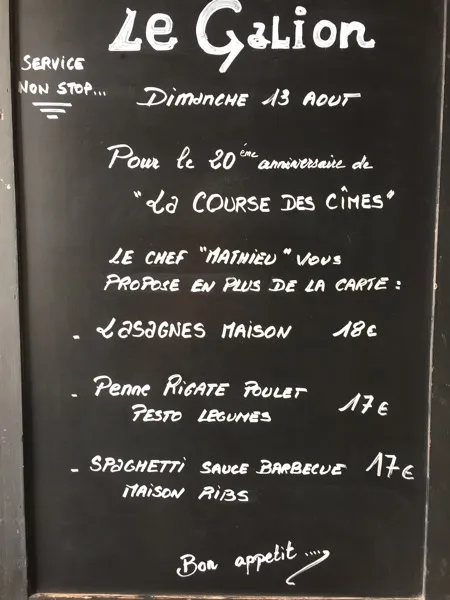 Le Galion
SERVICE
NON STOP...
Dimanche 13 AOUT
Pour le 20ème anniversaire de
"La COURSE DES CÎMES"
LE CHEF "MATHIEU" VOUS
PROPOSE EN PLUS DE LA CARTE :
- LASAGNES MAISON 18€
- Penne RIGATE POULET
PESTO LEGUMES 17€
- SPAGHETTI SAUCE BARBECUE 17€
MAISON RIBS
Bon appetit....